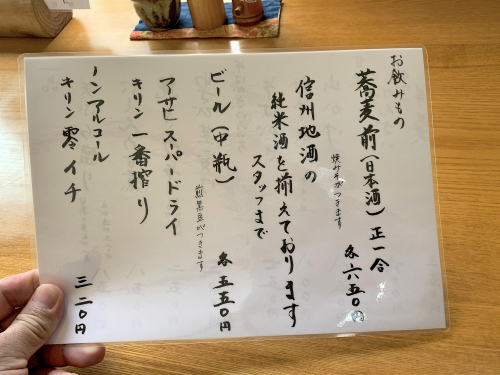 お飲みもの
蕎麦前(日本酒)正一合
焼みそがつきます
各六五〇円
信州地酒の
純米酒を揃えております
スタッフまで
ビール(中瓶)
煎黒豆がつきます
各五五〇円
アサヒ スーパードライ
キリン 一番搾り
ノンアルコール
キリン 零イチ
三二〇円